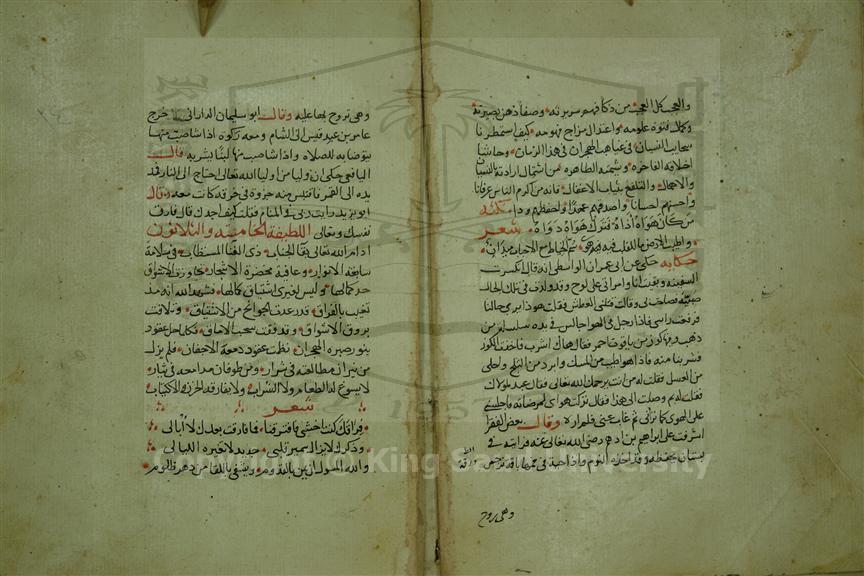 والعجب كل العجب من ذكا فهم سريرته وصفا ذهن بصيرته
وكمال فتوة علومه واعتدال مزاج فهومه كيف استمطرنا
سحايب النسيان في غياهب الهجران في هذا الزمان وحاشا
اخلاقه الفاخره وشيمته الطاهره من اشتمال اردية النسيان
والاهمال والتلفع بثياب الاغفال فانه من اكرم الناس عرفانا
واحسنهم احسانا واصدقهم عهدا واحفظهم ودا نكته
من كان هواه اذاه فترك هواه دواه شعر
واطيب الارض ما للقلب فيه هوى سم الخياط مع الاحباب ميدان
حكايه حكي عن ابي عمران الواسطي انه قال انكسرت
السفينه وبقيت انا وامراتي على لوح وقد ولدت في تلك الحال
صبية فصاحت بي وقالت قتلني العطش فقلت هو ذا يرى حالنا
فرفعت راسي فاذا رجل في الهوا جالس في يده سلسله من
ذهب وبها كوز من ياقوت احمر فقال هاك اشرب فاخذت الكوز
فشربنا منه فاذا هو اطيب من المسك وابرد من الثلج واحلى
من العسل فقلت له من انت يرحمك الله تعالى فقال عبد لمولاك
فقلت له بم وصلت الى هذا فقال تركت هواي لمرضاته فاجلسني
على الهوى كما تراني ثم غاب عني فلم اره وقال بعض الفقرا
اشرفت على ابراهيم بن ادهم رضي الله تعالى عنه فرايته في
بستان يحفظه وقد اخذه النوم واذا حية في فمها باقة نرجس
وهي تروح
وهي تروح بها عليه وقال ابو سليمان الداراني خرج
عامر بن عبد قيس الى الشام ومعه ركوه اذا شا صبت منها
يتوضا به للصلاه واذا شا صبت منها لبنا يشربه قال
اليافعي حكي ان وليا من اوليا الله تعالى احتاج الى النار فمد
يده الى القمر فاقتبس منه جزوة في خرقة كانت معه وقال
ابو يزيد رايت ربي في المنام فقلت كيف اجدك قال فارق
نفسك وتعالى اللطيفة الخامسة والثلاثون
ادام الله تعالى بقا الجناب ذي الفنا المستطاب في سلامة
سابغة الانوار وعافية مخضرة الاشجار
وليس لغيري اشتياق كمالها فشهد الله انه مذ
نعب بالفراق قد رعدت الجوانح من الاشتياق وتلالات
بروق الاشواق وقد دفقت سحب الاماق فكلما حل عقود
بنور صبره الهجران نظمت عقود دمعه الاجفان فلم يزل
من نيران مطالعته في شرار ومن طوفان مدامعه في تيار
لا يسوغ له الطعام ولا الشراب ولا يفارقه الحزن والاكتياب
شعر
فراقك كنت اخشى فافترقنا فما فارقت بعدك لا ابالى
وذكرك لا يزال سمير قلبي جديد لا تغيره الليالي
والله المسول ان يمن باللقا من دهره ظلوم